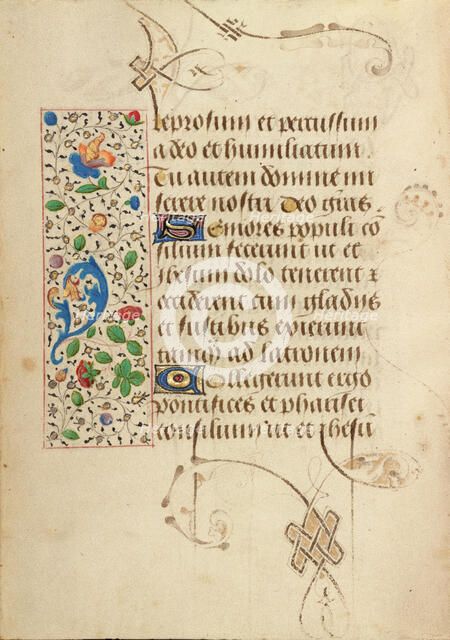 leprosum et percussum
a deo et humiliatum.
Tu autem domine mi
serere nostri Deo grãs.
Seniores populi cõ
silium fecerunt ut et
ihesum dolo tenerent ⁊
occiderent cum gladiis
et fustibus exierunt
tamq̃ ad latronem
Collegerunt ergo
pontifices et pharisei
consilium ut et ihesũ